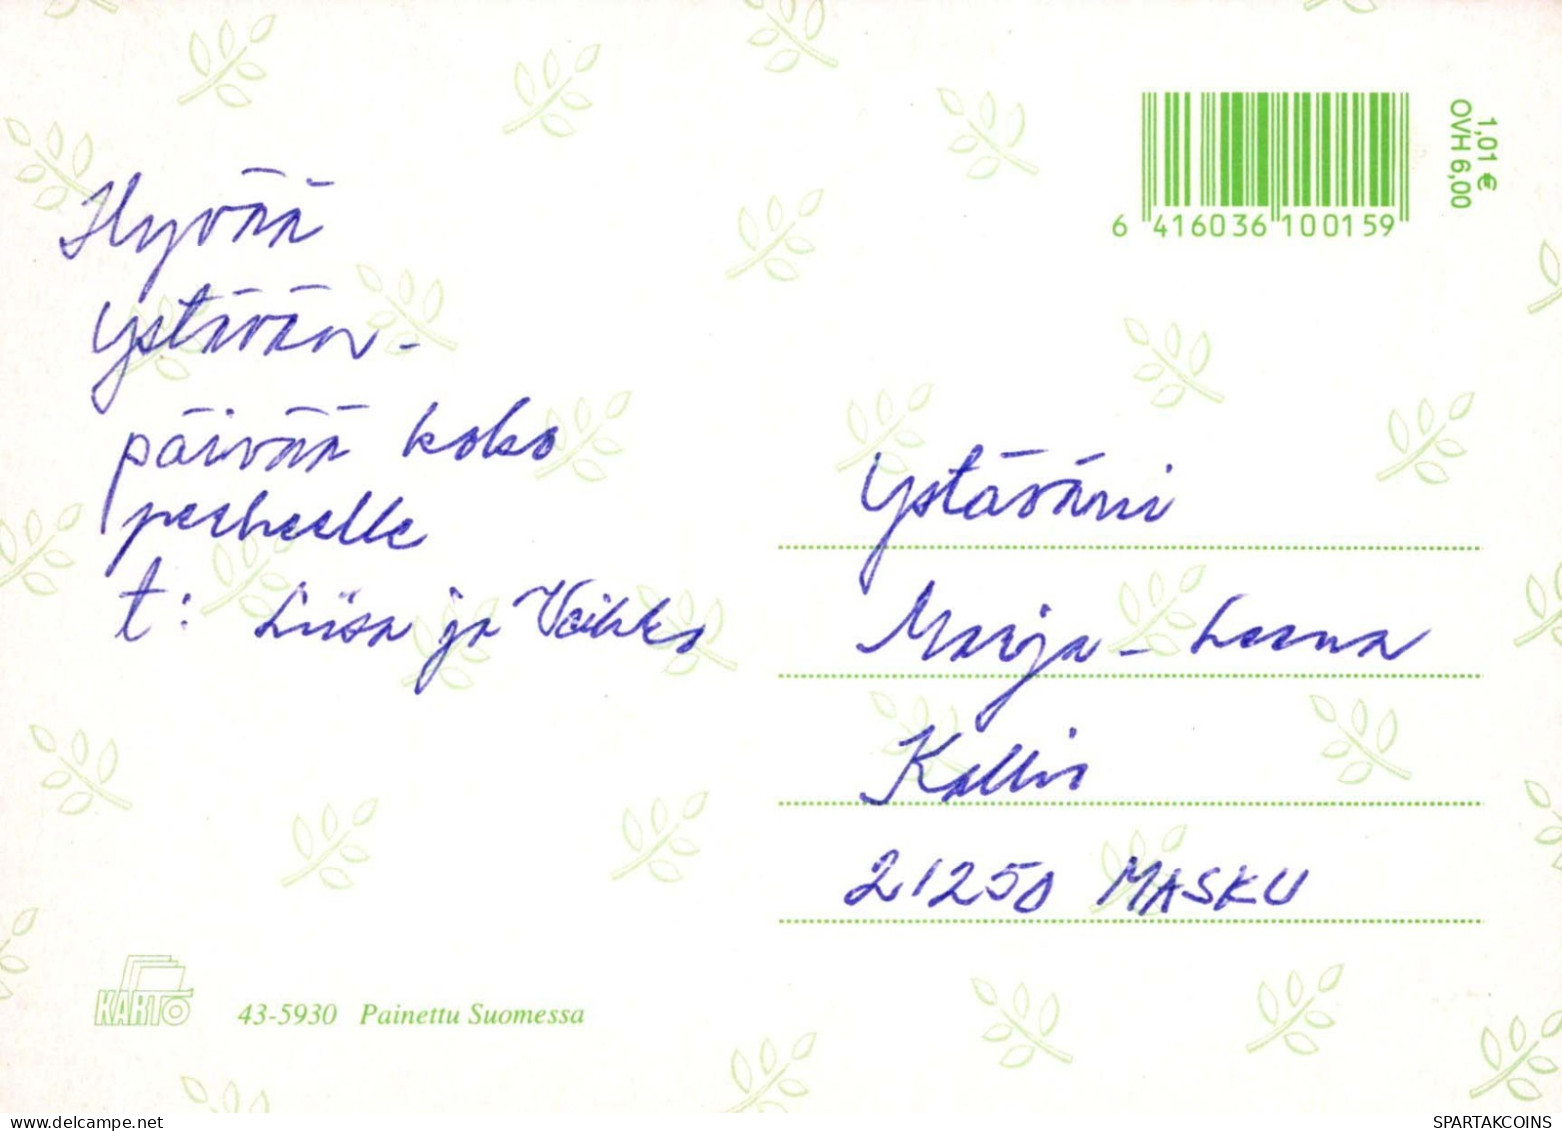 Hyvää
ystävän-
päivää koko
perheelle
t: Liisa ja Veikko
1,01 €
OVH 6,00
6 416036 100159
Ystäväni
Marja-Leena
Kallio
21250 MASKU
KARTO
43-5930 Painettu Suomessa
eBay.com
SPARTAKCOINS